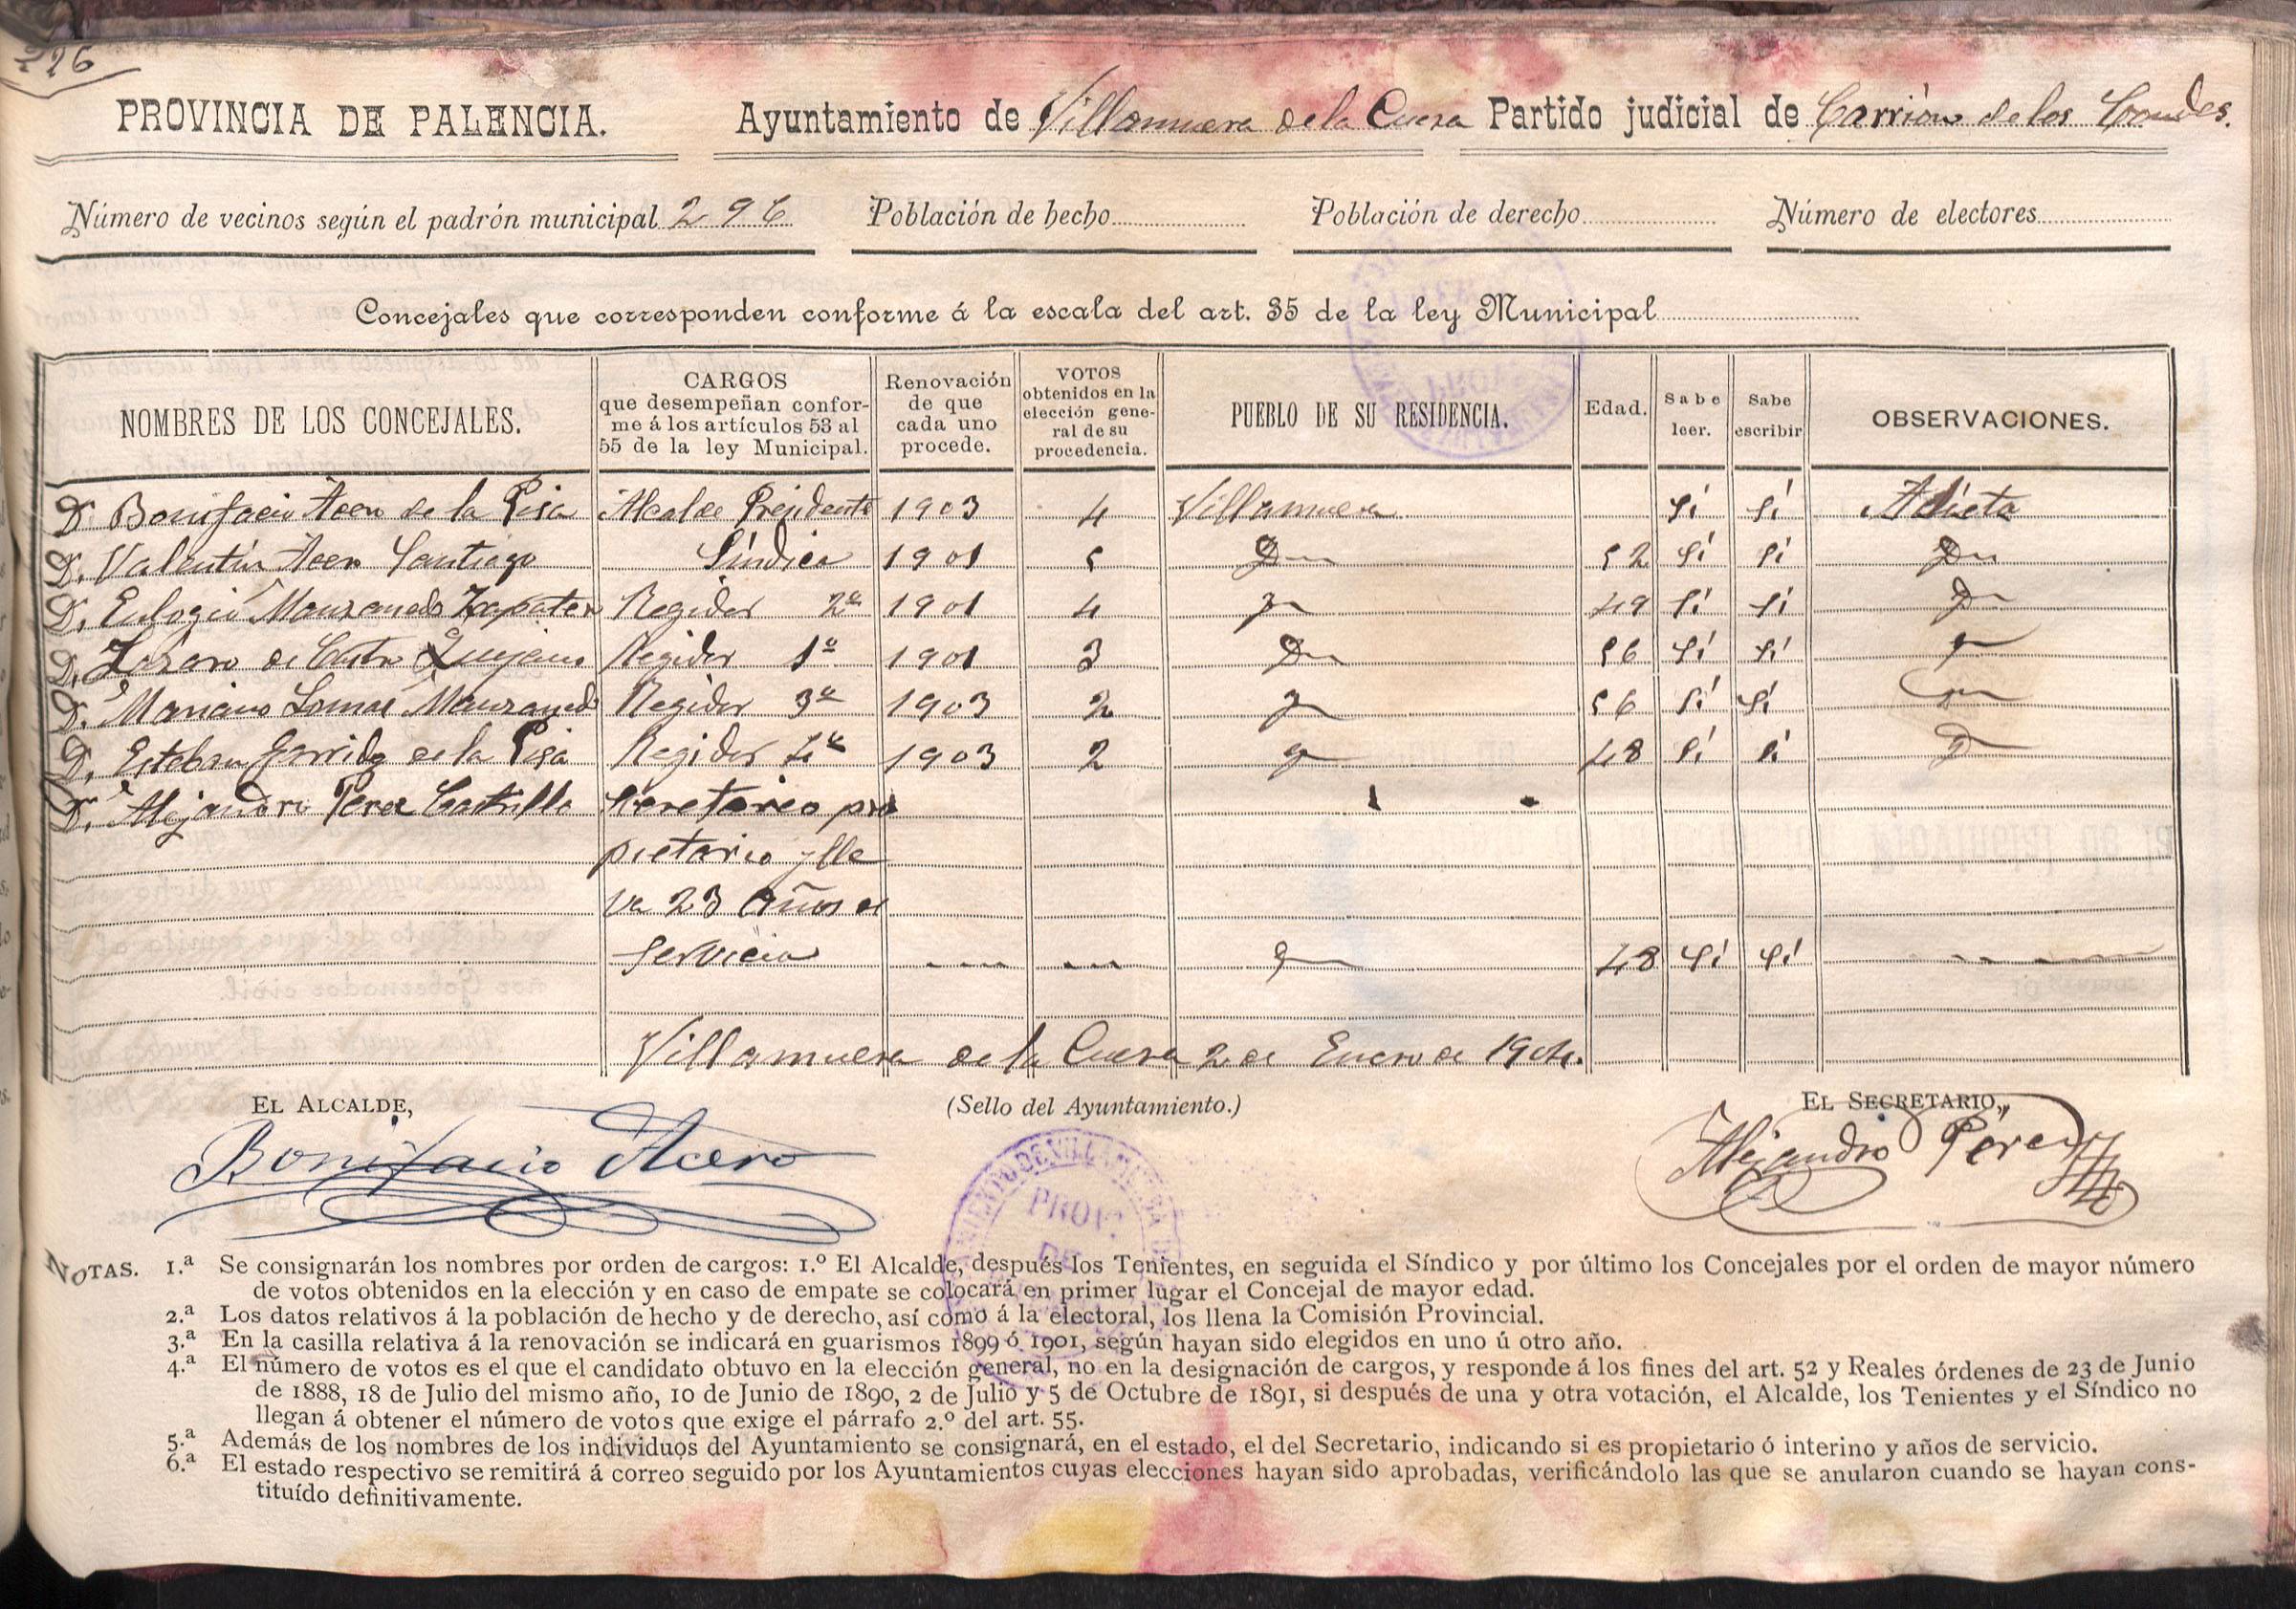 226
PROVINCIA DE PALENCIA. Ayuntamiento de Villamuera de la Cueza Partido judicial de Carrión de los Condes.
Número de vecinos según el padrón municipal 296 Población de hecho Población de derecho Número de electores
Concejales que corresponden conforme á la escala del art. 35 de la ley Municipal
NOMBRES DE LOS CONCEJALES. CARGOS que desempeñan conforme á los artículos 53 al 55 de la ley Municipal. Renovación de que cada uno procede. VOTOS obtenidos en la elección general de su procedencia. PUEBLO DE SU RESIDENCIA. Edad. Sabe leer. Sabe escribir OBSERVACIONES.
D. Bonifacio Acero de la Pisa Alcalde Presidente 1903 4 Villamuera Sí Sí Adicto
D. Valentín Acero Santiago Síndico 1901 5 Dn 52 Sí Sí Dn
D. Eulogio Manzanedo Zapatero Regidor 2º 1901 4 49 Sí Sí
D. Lázaro de Castro Quijano Regidor 1º 1901 3 Dn 56 Sí Sí
D. Mariano Lomas Manzanedo Regidor 3º 1903 2 56 Sí Sí
D. Esteban Garrido de la Pisa Regidor 4º 1903 2 48 Sí Sí
D. Alejandro Perez Castrillo Secretario pro
pietario y lle
va 23 años de
servicio 48 Sí Sí
Villamuera de la Cueza 2 de Enero de 1904.
EL ALCALDE, (Sello del Ayuntamiento.) EL SECRETARIO,
Bonifacio Acero Alejandro Pérez
PROV.
DE
NOTAS. 1.ª Se consignarán los nombres por orden de cargos: 1.º El Alcalde, después los Tenientes, en seguida el Síndico y por último los Concejales por el orden de mayor número
de votos obtenidos en la elección y en caso de empate se colocará en primer lugar el Concejal de mayor edad.
2.ª Los datos relativos á la población de hecho y de derecho, así como á la electoral, los llena la Comisión Provincial.
3.ª En la casilla relativa á la renovación se indicará en guarismos 1899 ó 1901, según hayan sido elegidos en uno ú otro año.
4.ª El número de votos es el que el candidato obtuvo en la elección general, no en la designación de cargos, y responde á los fines del art. 52 y Reales órdenes de 23 de Junio
de 1888, 18 de Julio del mismo año, 10 de Junio de 1890, 2 de Julio y 5 de Octubre de 1891, si después de una y otra votación, el Alcalde, los Tenientes y el Síndico no
llegan á obtener el número de votos que exige el párrafo 2.º del art. 55.
5.ª Además de los nombres de los individuos del Ayuntamiento se consignará, en el estado, el del Secretario, indicando si es propietario ó interino y años de servicio.
6.ª El estado respectivo se remitirá á correo seguido por los Ayuntamientos cuyas elecciones hayan sido aprobadas, verificándolo las que se anularon cuando se hayan cons-
tituído definitivamente.